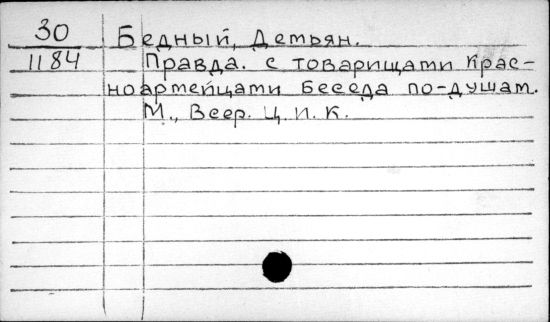 30 Бедный, Демьян.
1184 Правда. с товарищами крас-
ноармейцами беседа по-душам.
М., Всер. Ц. И. К.